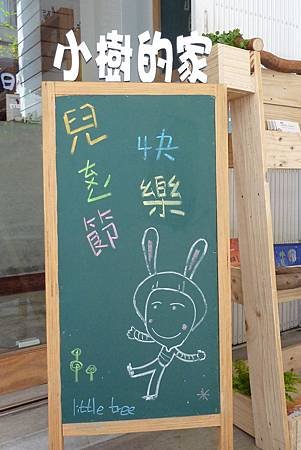 小樹的家
兒童節
快樂
little tree
日